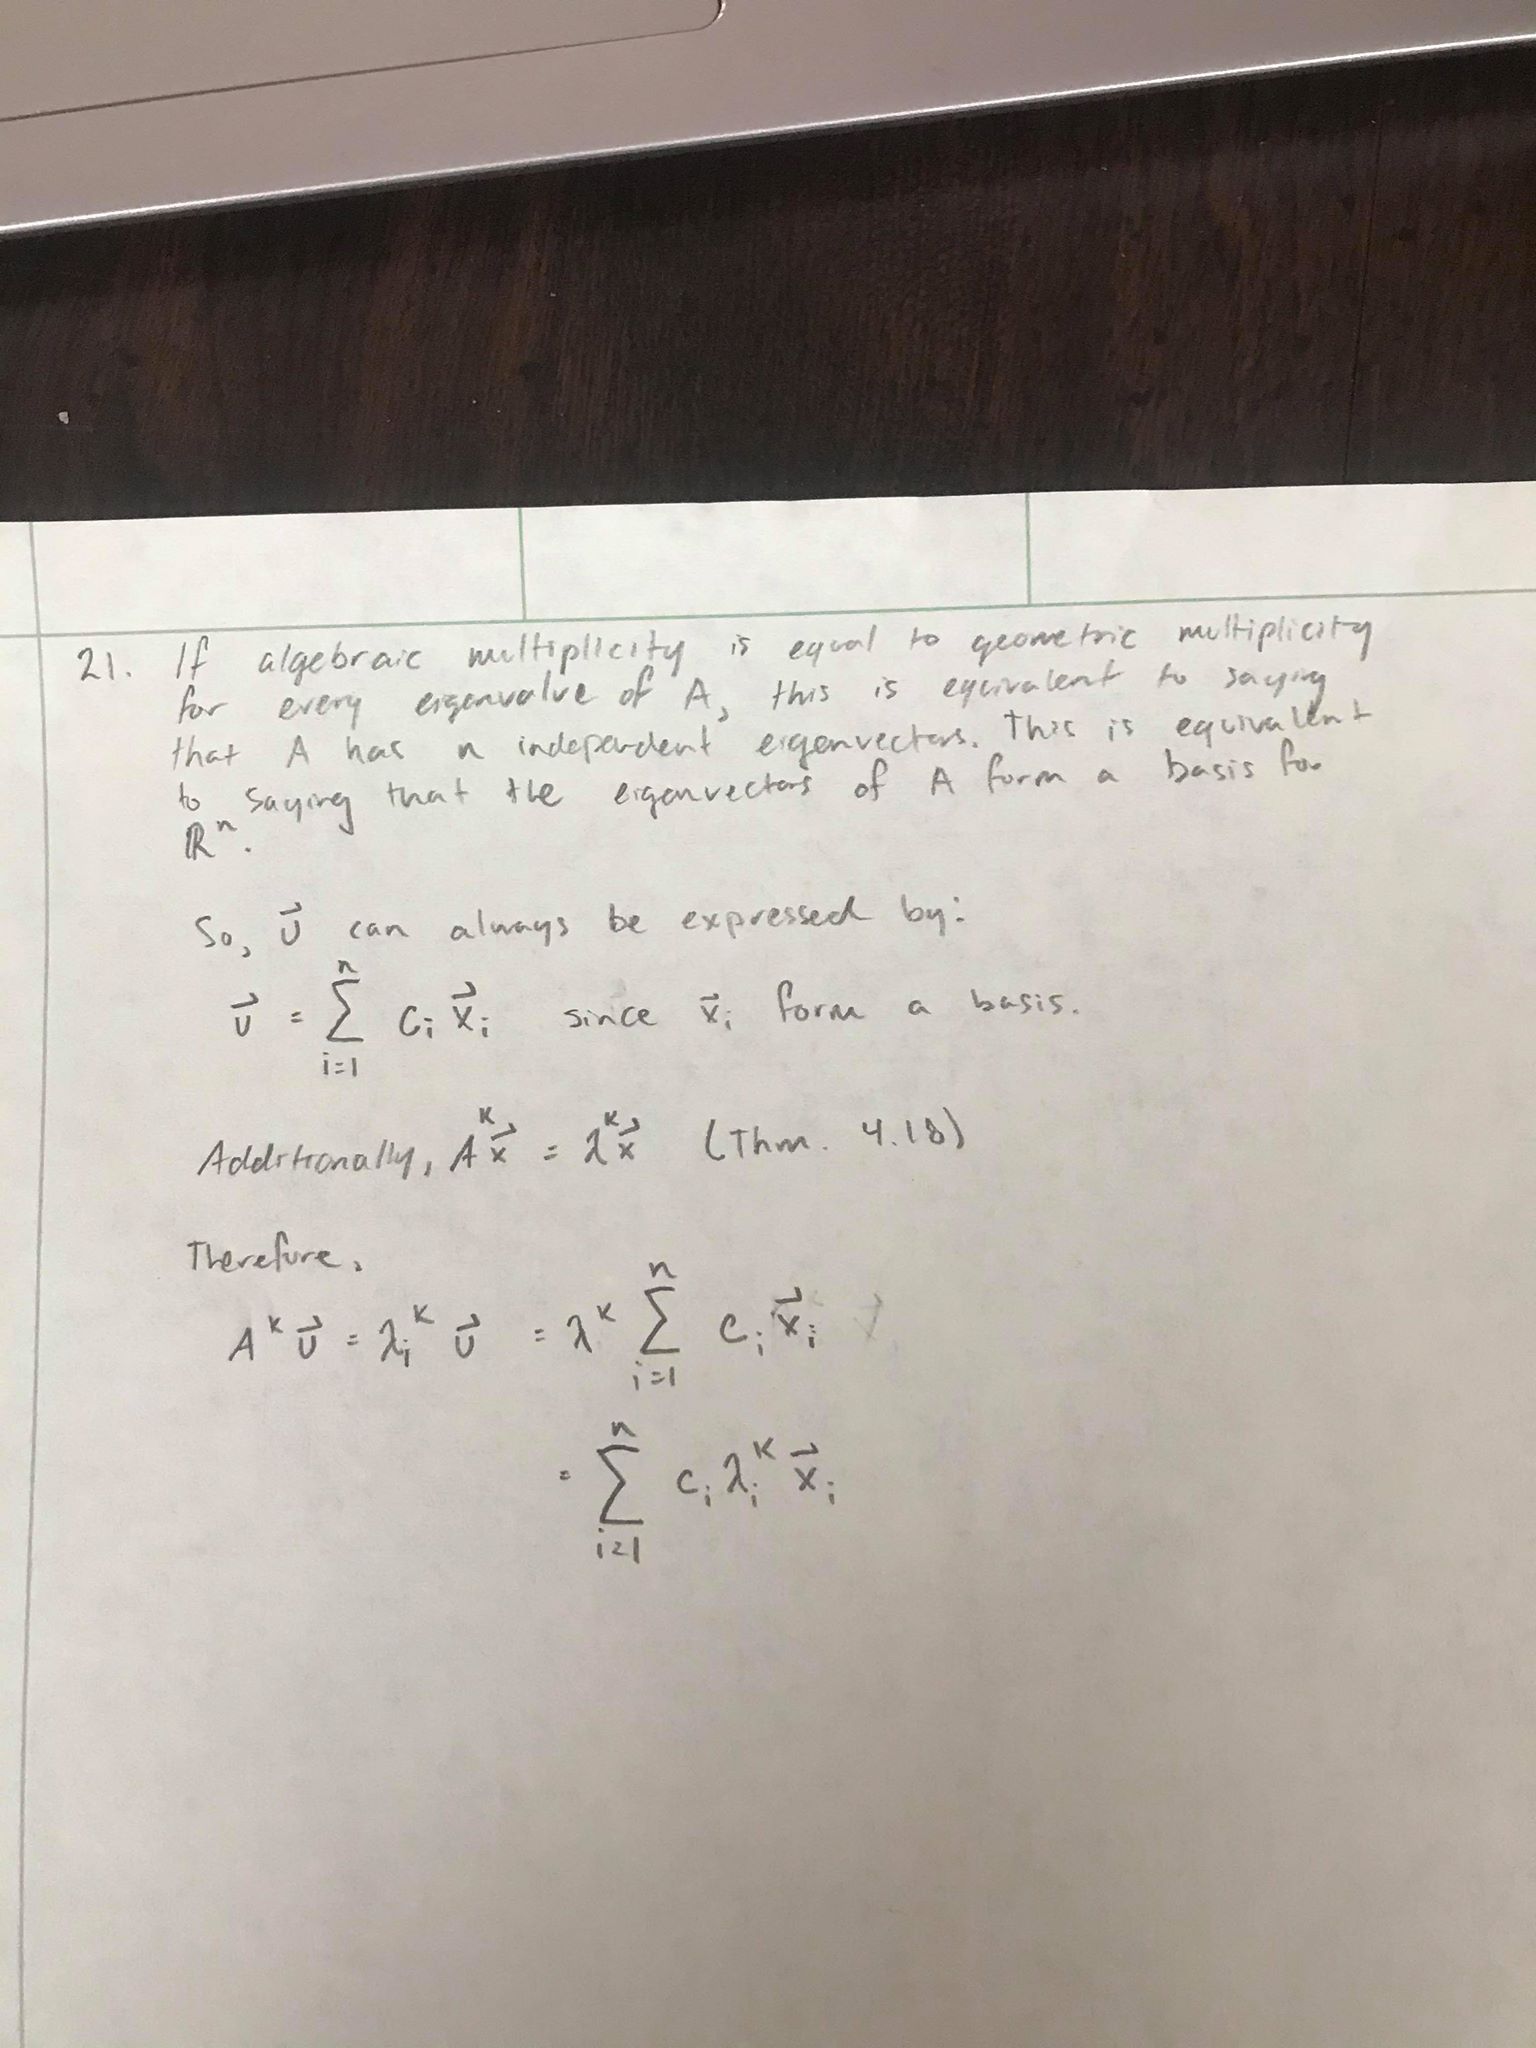 21. If algebraic multiplicity is equal to geometric multiplicity
for every eigenvalue of A, this is equivalent to saying
that A has n independent eigenvectors. This is equivalent
to saying that the eigenvectors of A form a basis for
ℝⁿ.
So, v⃗ can always be expressed by:
v⃗ = ∑_{i=1}^{n} cᵢ x⃗ᵢ since x⃗ᵢ form a basis.
Additionally, Aᵏx⃗ = λᵏx⃗ (Thm. 4.18)
Therefore,
Aᵏv⃗ = λᵢᵏ v⃗ = λᵏ ∑_{i=1}^{n} cᵢ x⃗ᵢ
= ∑_{i=1}^{n} cᵢ λᵢᵏ x⃗ᵢ